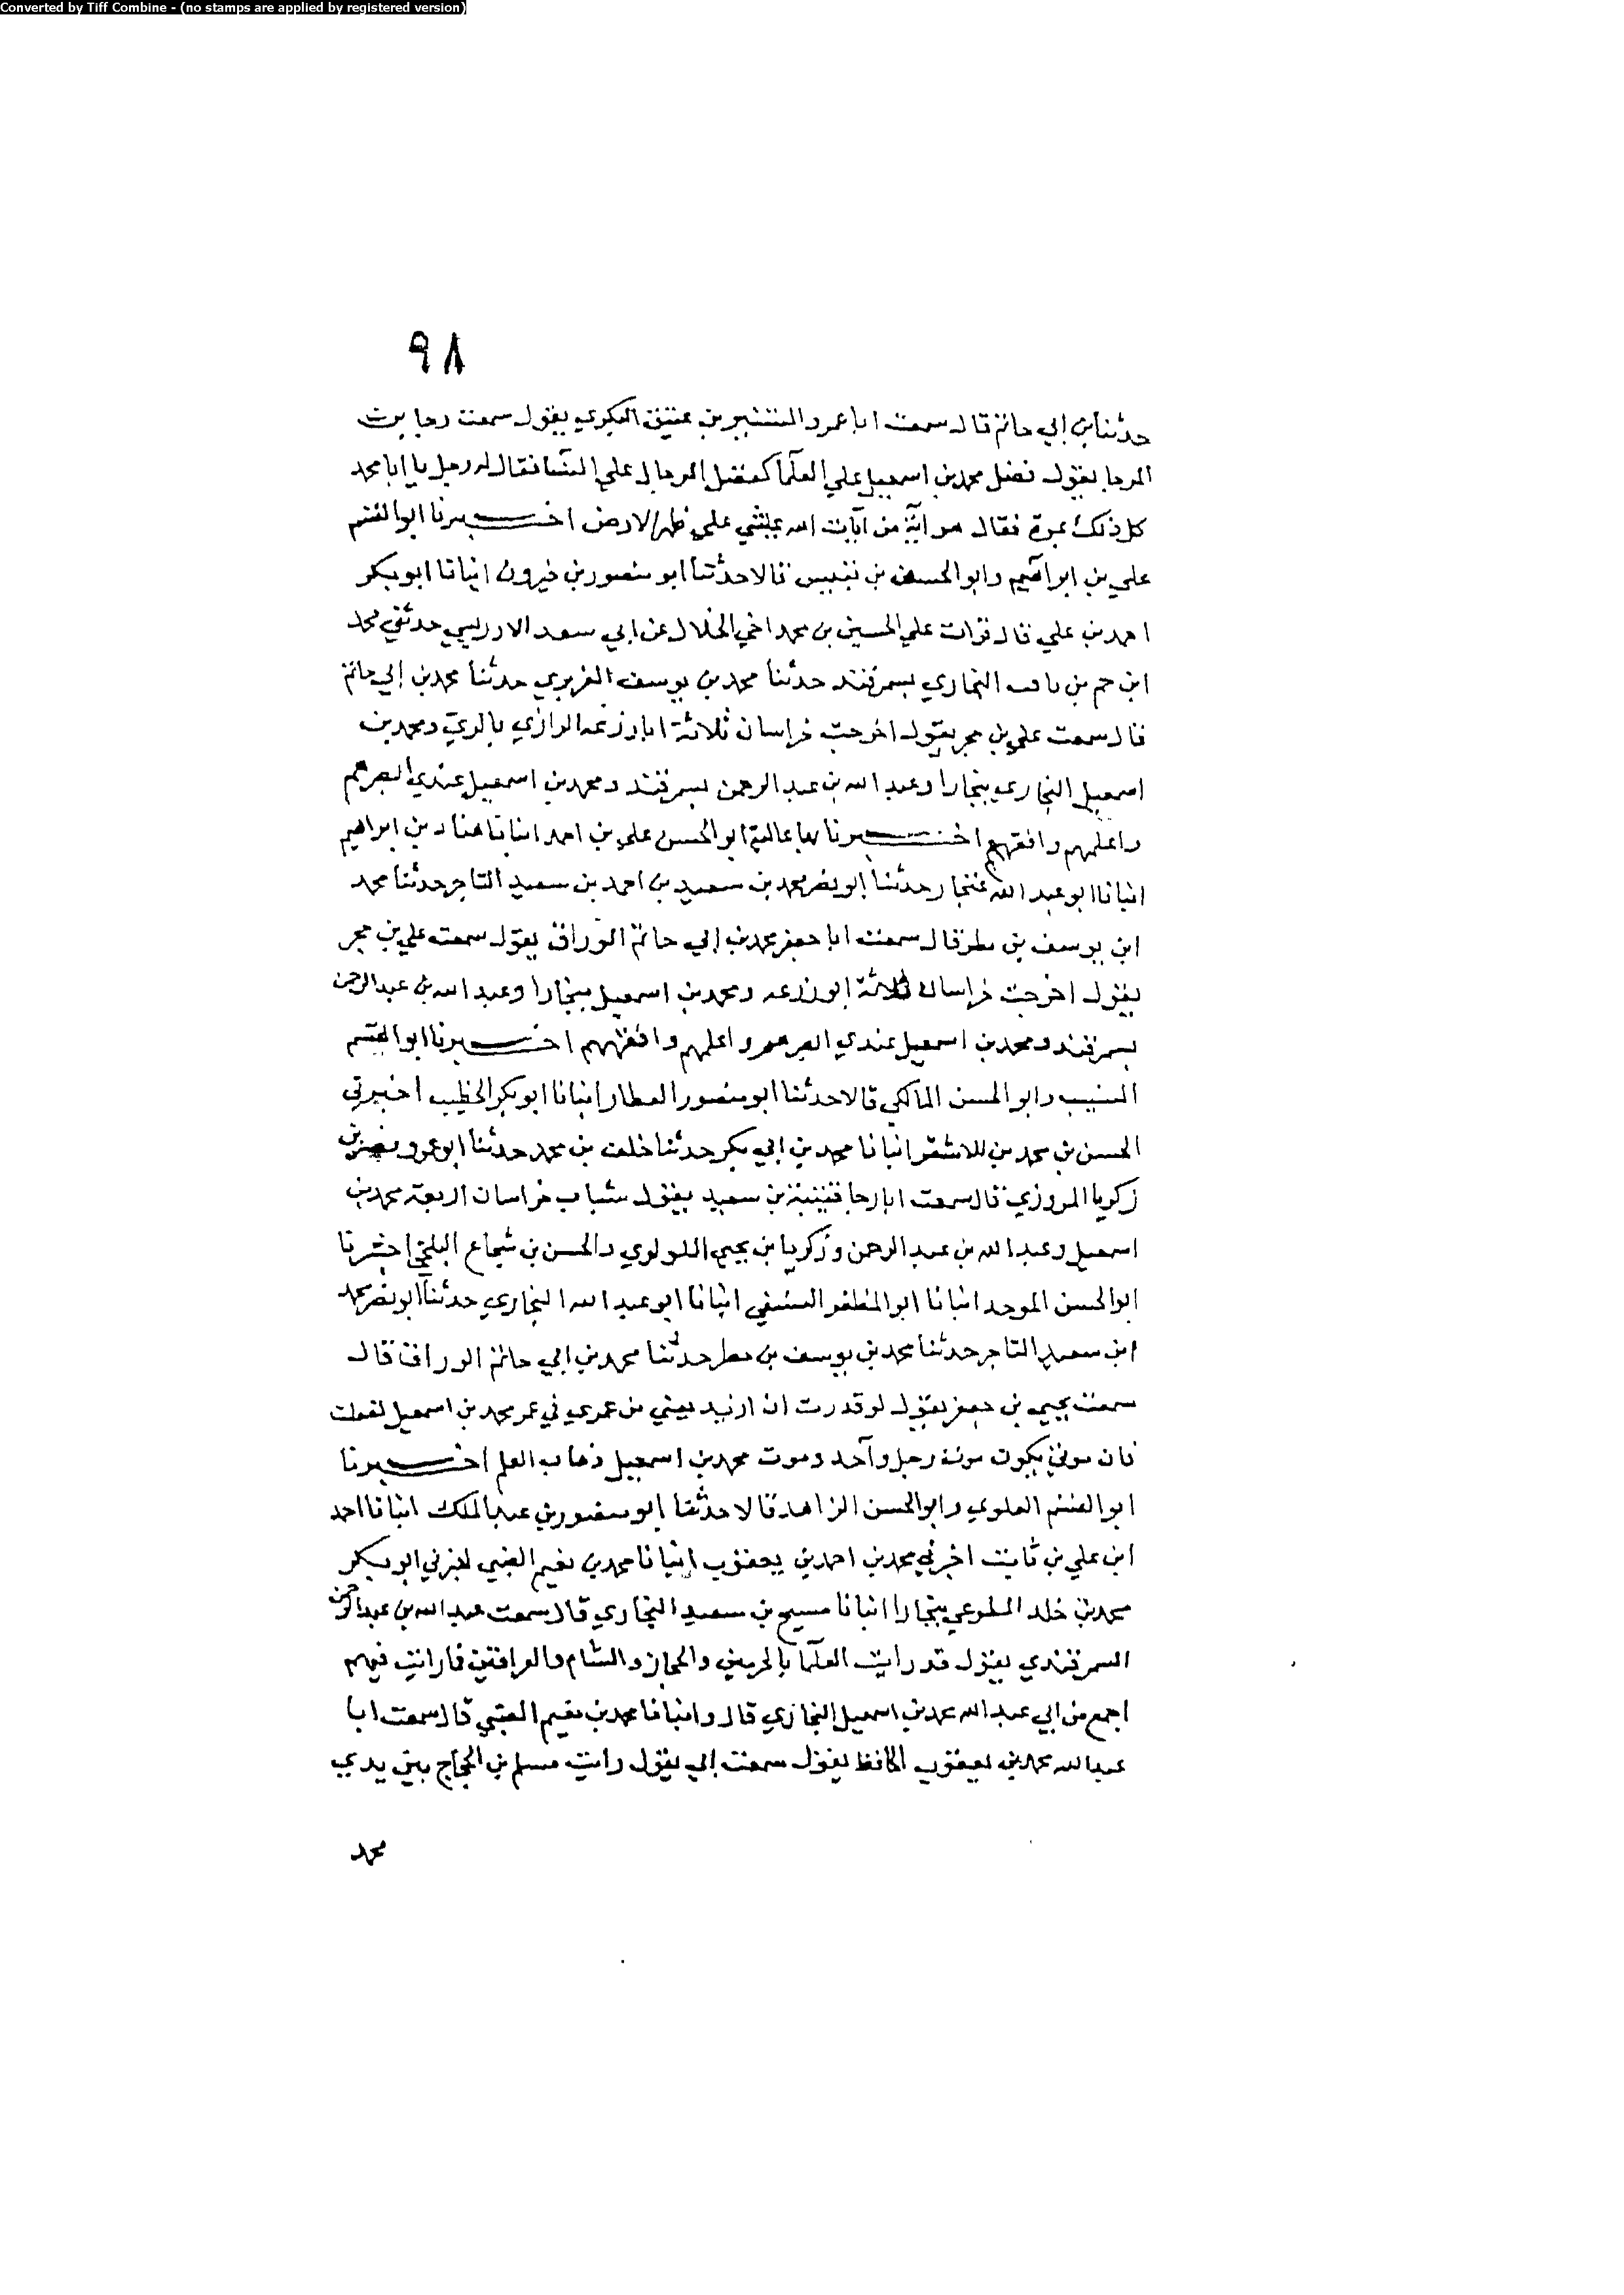 Converted by Tiff Combine - (no stamps are applied by registered version)
٩٨
حدثنا بن ابي حاتم قال سمعت ابا عمرو المستنير بن عتيق البكري يقول سمعت رجا بن
المرجا يقول فضل محمد بن اسمعيل علي العلمآ كفضل الرجال علي النسآ فقال له رجل يا ابا محمد
كل ذلك بمرة فقال هو آية من آيات الله يمشي علي ظهر الارض اخبرنا ابو القسم
علي بن ابراهيم وابو الحسن بن قبيس قالا حدثنا ابو منصور بن خيرون انبانا ابو بكر
احمد بن علي قال قرات علي الحسين بن محمد اخي الخلال عن ابي سعد الادريسي حدثني محمد
ابن حم بن ناقب البخاري بسمرقند حدثنا محمد بن يوسف الفربري حدثنا محمد بن ابي حاتم
قال سمعت علي بن حجر يقول اخرجت خراسان ثلاثة ابا زرعه الرازي بالري ومحمد بن
اسمعيل البخاري ببخارا وعبد الله بن عبد الرحمن بسمرقند ومحمد بن اسمعيل عندي ابصرهم
واعلمهم وافقههم اخبرنا بها عالية ابو الحسن علي بن احمد انبانا هناد بن ابراهيم
انبانا ابو عبد الله غنجار حدثنا ابو نصر محمد بن سعيد بن احمد بن سعيد التاجر حدثنا محمد
ابن يوسف بن مطر قال سمعت ابا جعفر محمد بن ابي حاتم الوراق يقول سمعت علي بن حجر
يقول اخرجت خراسان ثلاثة ابو زرعه ومحمد بن اسمعيل ببخارا وعبد الله بن عبد الرحمن
بسمرقند ومحمد بن اسمعيل عندي ابصرهم واعلمهم وافقههم اخبرنا ابو القسم
النسيب وابو الحسن المالكي قالا حدثنا ابو منصور العطار انبانا ابو بكر الخطيب اخبرني
الحسن بن محمد بن الاشقر انبانا محمد بن ابي بكر حدثنا خلف بن محمد حدثنا ابو عمرو نصر بن
زكريا المروزي قال سمعت ابا رجا قتيبة بن سعيد يقول شباب خراسان اربعة محمد بن
اسمعيل وعبد الله بن عبد الرحمن وزكريا بن يحيي اللولوي والحسن بن شجاع البلخي اخبرنا
ابو الحسن الموحد انبانا ابو المظفر النسفي انبانا ابو عبد الله البخاري حدثنا ابو نصر محمد
ابن سعيد التاجر حدثنا محمد بن يوسف بن مطر حدثنا محمد بن ابي حاتم الوراق قال
سمعت يحيي بن جعفر يقول لو قدرت ان ازيد يعني من عمري في عمر محمد بن اسمعيل لفعلت
فان موتي يكون موت رجل وآحد وموت محمد بن اسمعيل ذهاب العلم اخبرنا
ابو القسم العلوي وابو الحسن الزاهد قالا حدثنا ابو منصور بن عبد الملك انبانا احمد
ابن علي بن ثابت اخبرني محمد بن احمد بن يعقوب انبانا محمد بن نعيم الضبي اخبرني ابو بكر
محمد بن خلد المطوعي ببخارا انبانا مسبح بن سعيد البخاري قال سمعت عبد الله بن عبد الرحمن
السمرقندي يقول قد رايت العلمآ بالحرمين والحجاز والشام والعراقين فما رايت فيهم
اجمع من ابي عبد الله محمد بن اسمعيل البخاري قال وانبانا محمد بن نعيم الضبي قال سمعت ابا
عبد الله محمد بن يعقوب الحافظ يقول سمعت ابي يقول رايت مسلم بن الحجاج بين يدي
محمد